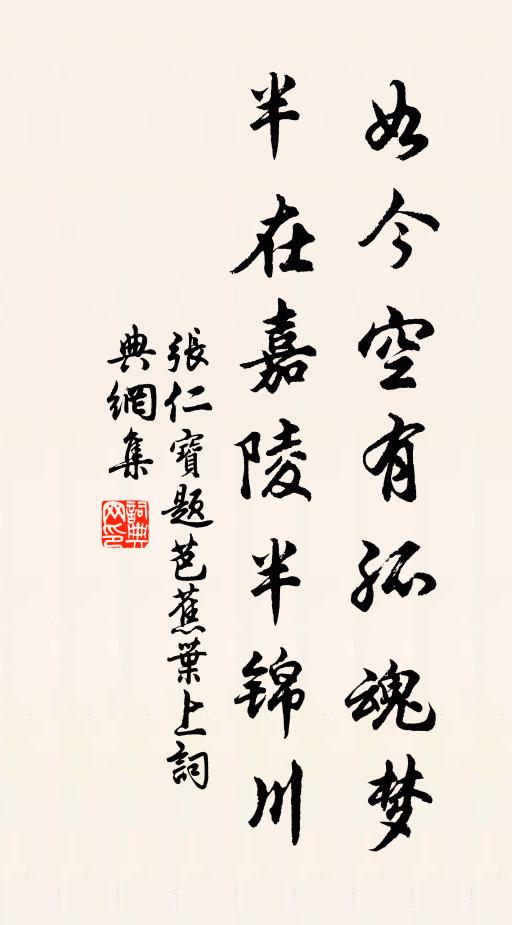 如今空有孤魂梦
半在嘉陵半锦川
張仁寶題芭蕉葉上詞
典網集
詞典網印